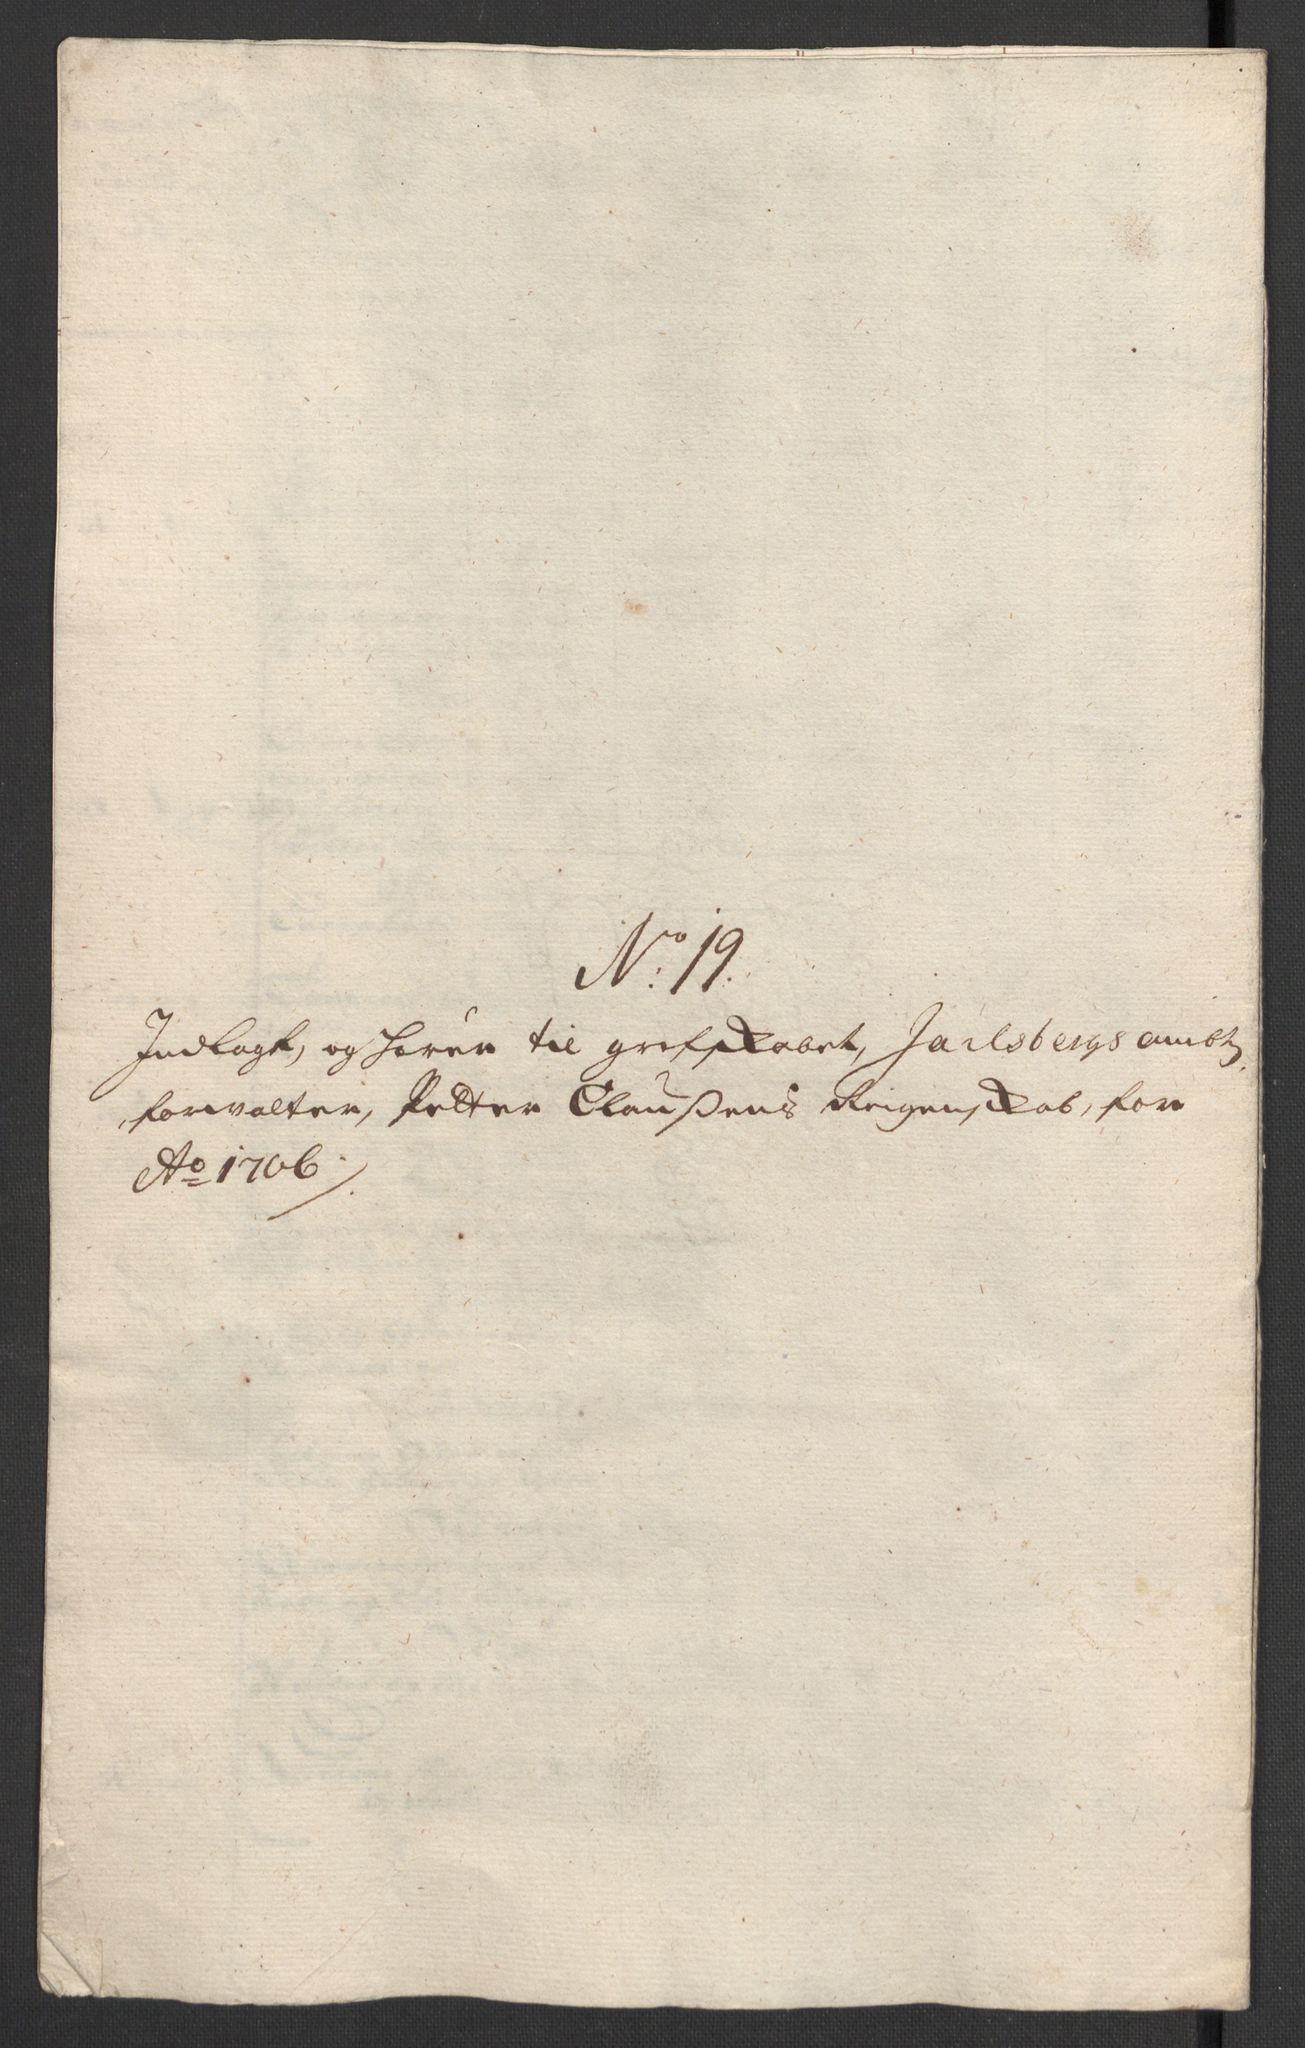 No: 19.
Indlagt, og hører til grefskabet, Jarlsbergs ambtz
forvalter, Petter Claußens Reigenskab, for
Ao 1706.